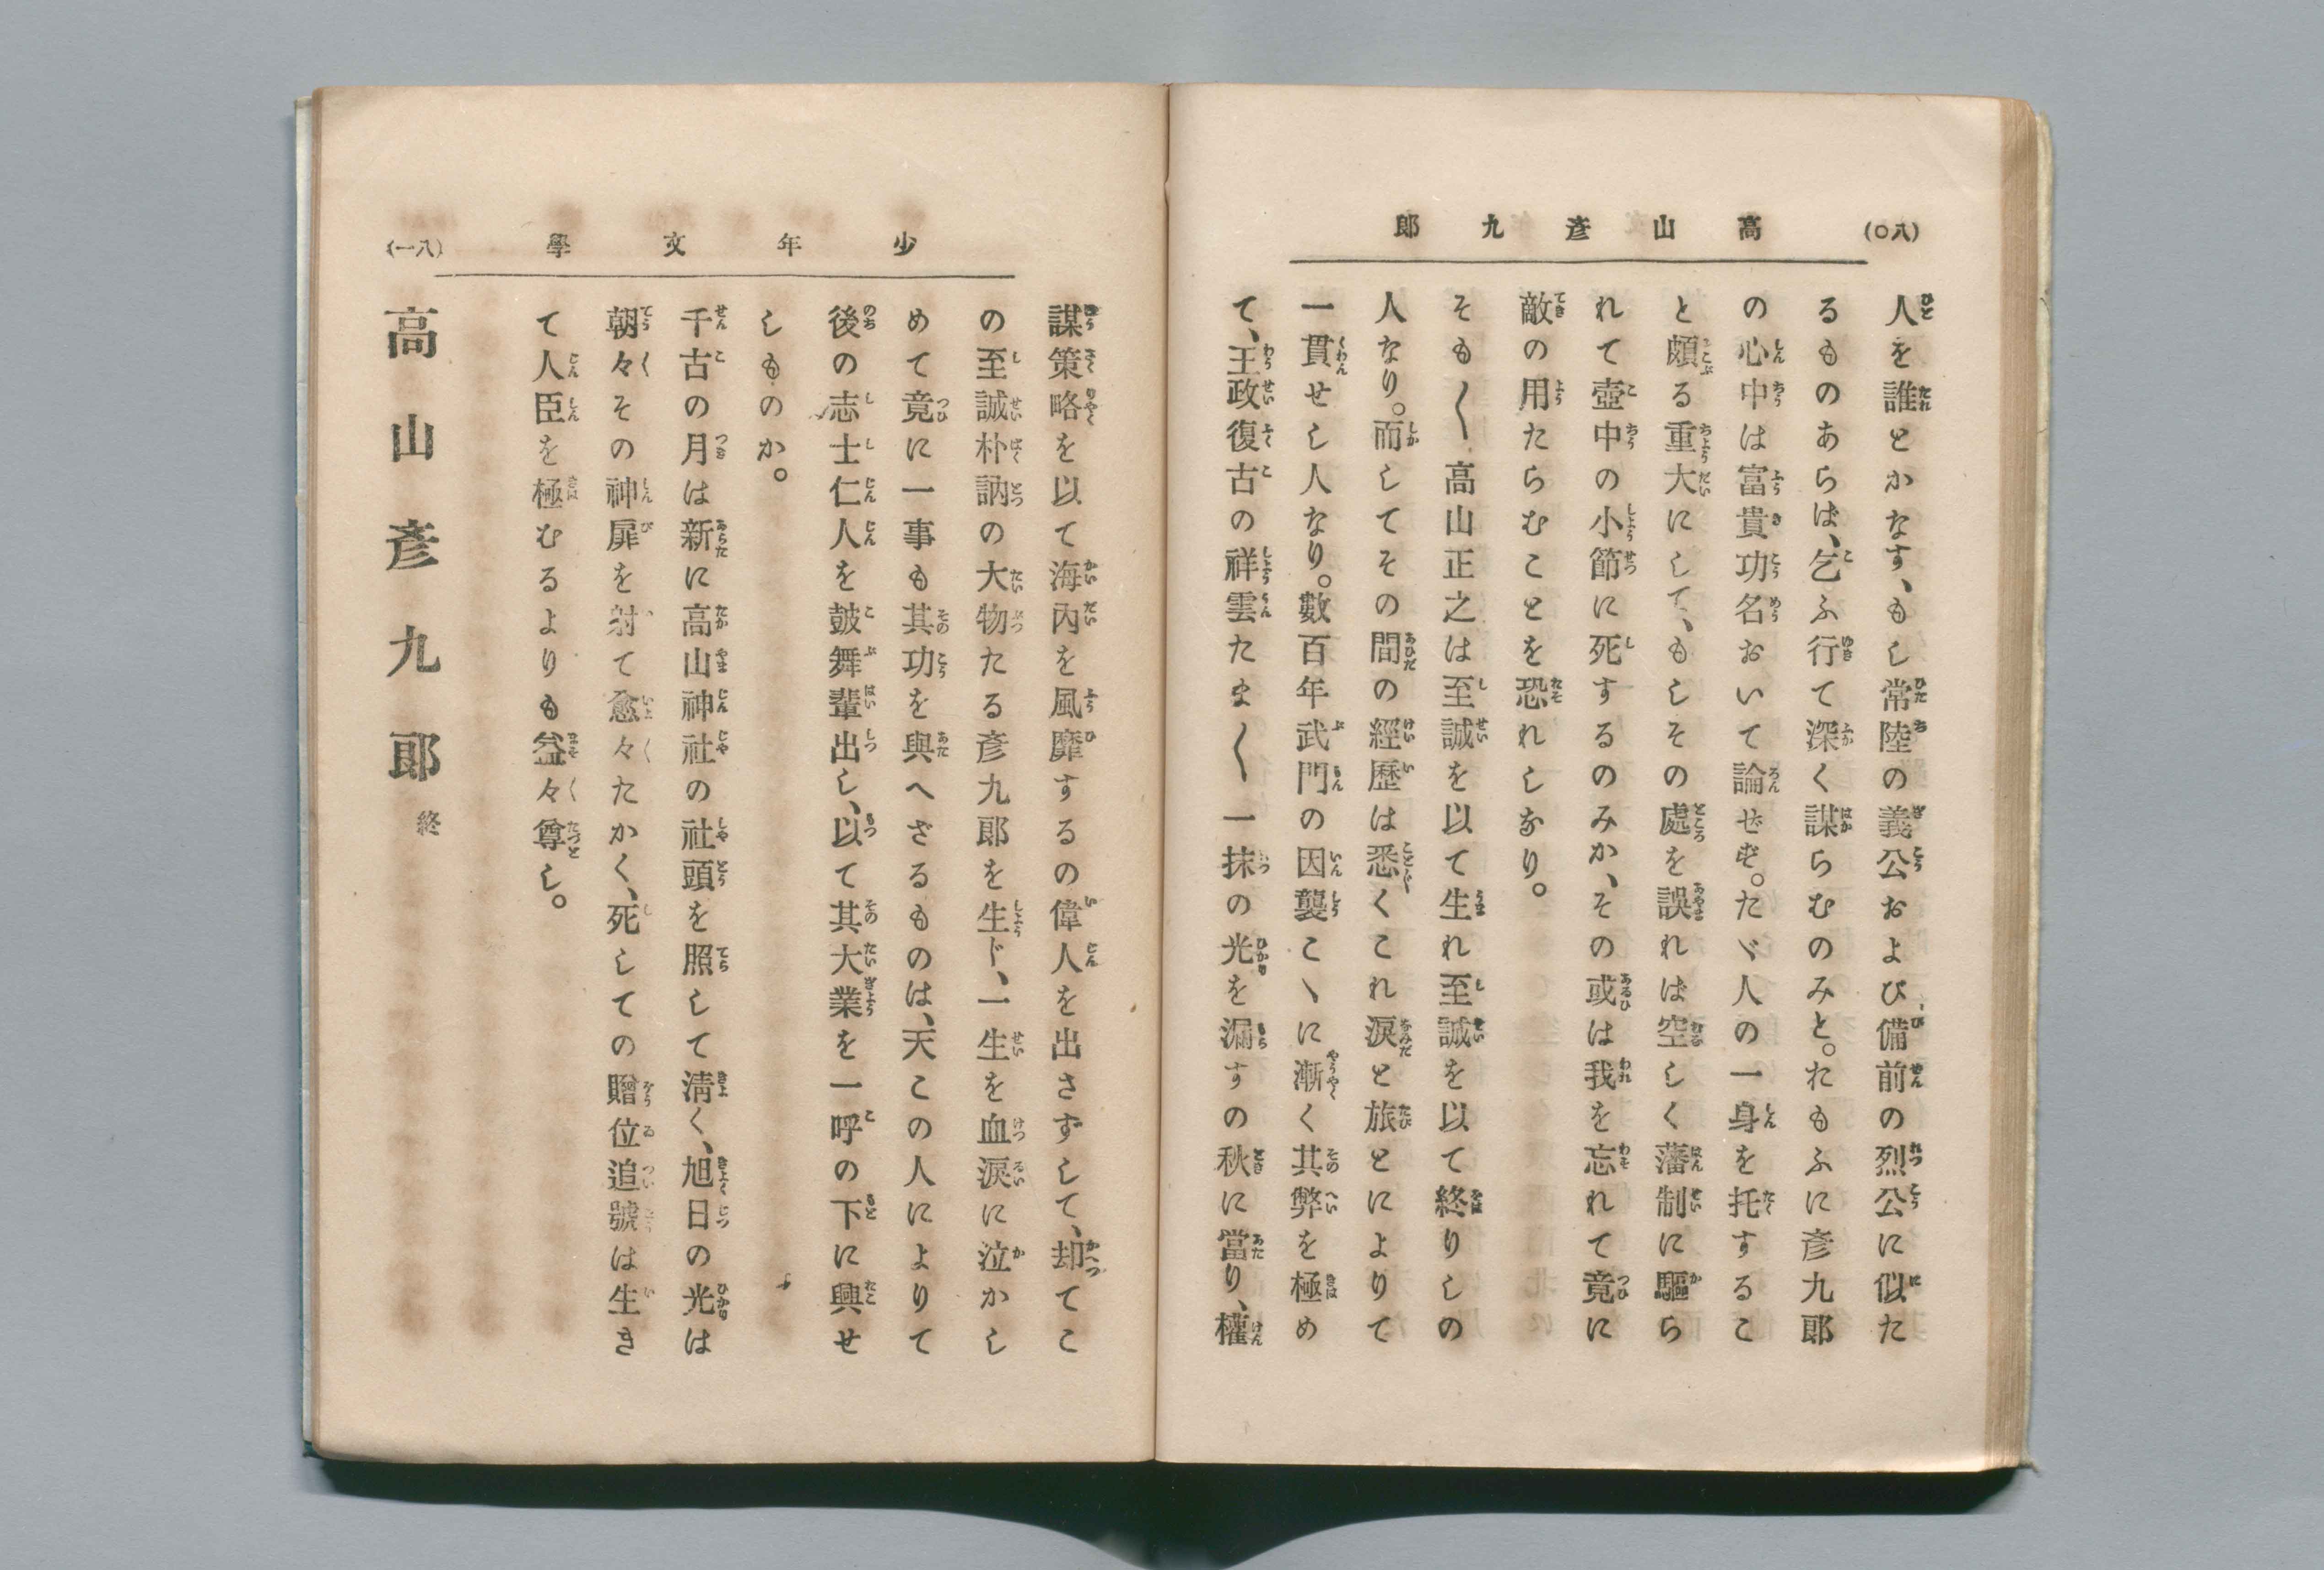 (八〇)
高山彥九郎
人を誰とかなす、もし常陸の義公および備前の烈公に似た
るものあらば、乞ふ行て深く謀らむのみと。れもふに彥九郎
の心中は富貴功名おいて論ぜず。たゞ人の一身を托するこ
と頗る重大にして、もしその處を誤れは空しく藩制に驅ら
れて壺中の小節に死するのみか、その或は我を忘れて竟に
敵の用たらむことを恐れしなり。
そも〱高山正之は至誠を以て生れ至誠を以て終りしの
人なり。而してその間の經歷は悉くこれ淚と旅とによりて
一貫せし人なり。數百年武門の因襲こゝに漸く其弊を極め
て、王政復古の祥雲たま〱一抹の光を漏すの秋に當り、權
少年文學
(八一)
謀策略を以て海內を風靡するの偉人を出さずして、却てこ
の至誠朴訥の大物たる彥九郎を生じ、一生を血淚に泣かし
めて竟に一事も其功を與へざるものは、天この人によりて
後の志士仁人を鼓舞輩出し、以て其大業を一呼の下に興せ
しものか。
千古の月は新に高山神社の社頭を照して淸く、旭日の光は
朝々その神扉を射て愈々たかく、死しての贈位追號は生き
て人臣を極むるよりも益々尊し。
高山彥九郎終